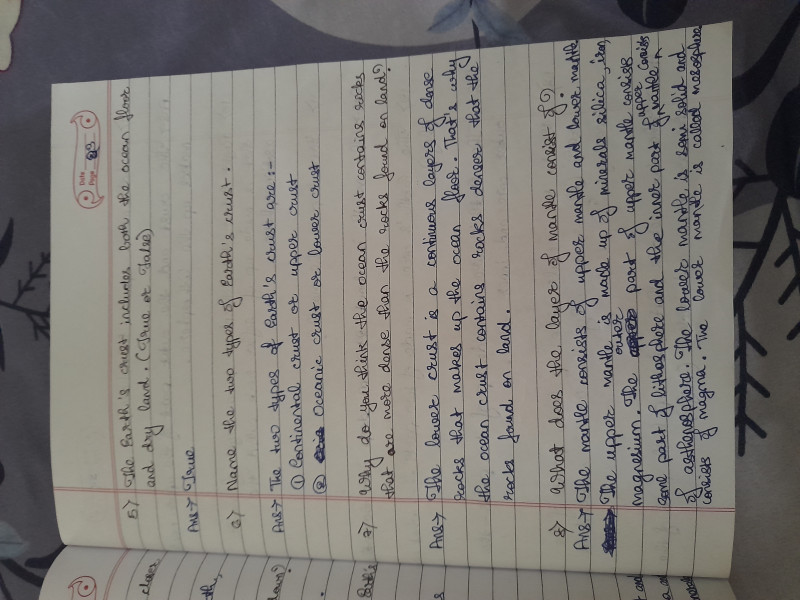 Date
Page 03
5) The Earth's crust includes both the ocean floor
and dry land. (True or False)
Ans→ True
6) Name the two types of Earth's crust.
Ans→ The two types of Earth's crust are :-
① Continental crust or upper crust
② Oceanic crust or lower crust
7) Why do you think the ocean crust contains rocks
that are more dense than the rocks found on land?
Ans→ The lower crust is a continuous layers of dense
rocks that makes up the ocean floor. That's why
the ocean crust contains rocks denser that the
rocks found on land.
8) What does the layer of mantle consist of?
Ans→ The mantle consists of upper mantle and lower mantle
The upper mantle is made up of minerals silica, iron,
magnesium. The outer part of upper mantle consists
some part of lithosphere and the inner part of upper mantle consists
of asthenosphere. The lower mantle is semi solid and
consists of magma. The lower mantle is called mesosphere